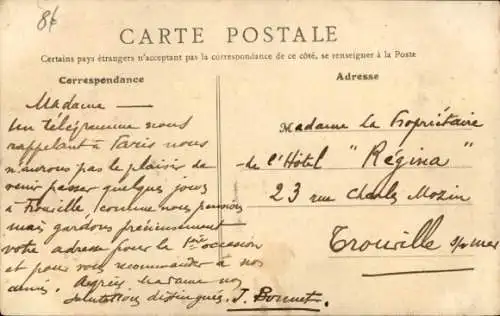 8f
CARTE POSTALE
Certains pays étrangers n'acceptant pas la correspondance de ce côté, se renseigner à la Poste
Correspondance
Adresse
Madame —
Un télégramme nous
rappelant à Paris nous
n'aurons pas le plaisir de
venir passer quelques jours
à Trouville comme nous pensions
mais gardons précieusement
votre adresse pour la 1ère occasion
et pour vous recommander à nos
amis. Agréez Madame nos
salutations distinguées. J. Bonnet.
Madame la Propriétaire
de l'Hôtel "Régina"
23 rue Charles Mozin
Trouville s/mer